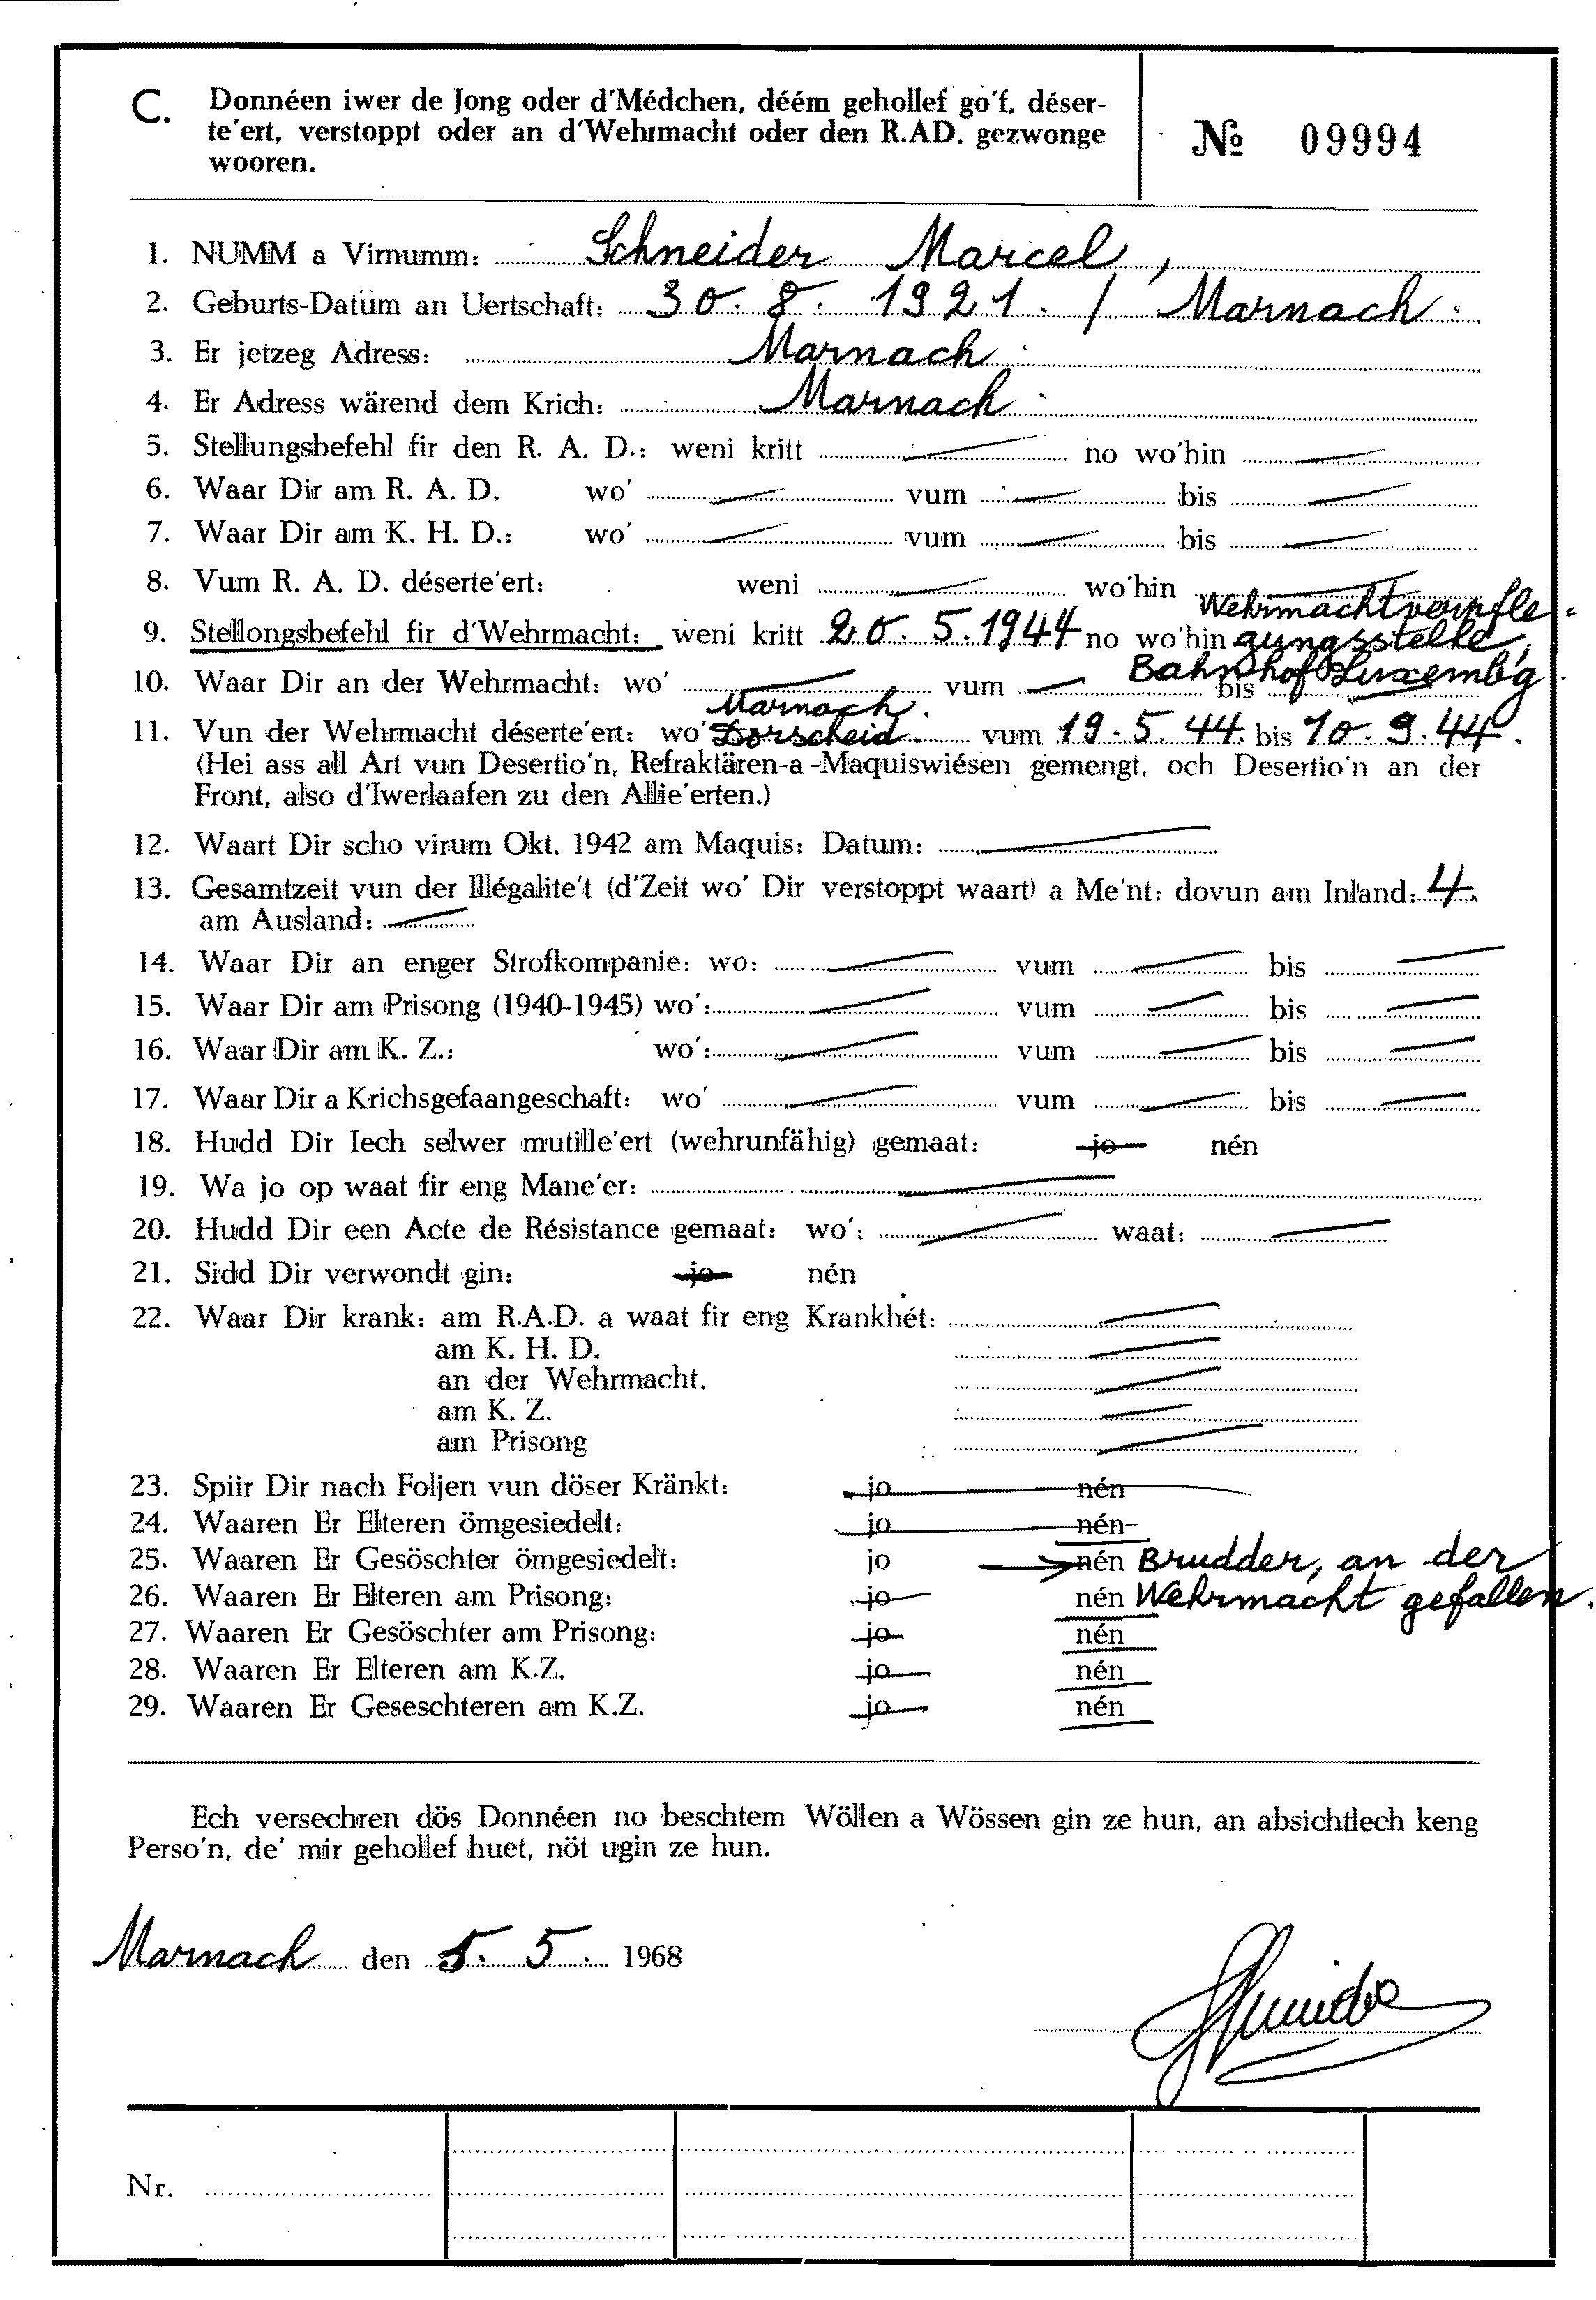 C. Donnéen iwer de Jong oder d'Médchen, déém gehollef go'f, déser-
te'ert, verstoppt oder an d'Wehrmacht oder den R.AD. gezwonge
wooren.
№ 09994
1. NUMM a Virnumm: Schneider Marcel,
2. Geburts-Datum an Uertschaft: 30. 8. 1921. / Marnach.
3. Er jetzeg Adress: Marnach.
4. Er Adress wärend dem Krich: Marnach.
5. Stellungsbefehl fir den R. A. D.: weni kritt — no wo'hin —
6. Waar Dir am R. A. D. wo' — vum — bis —
7. Waar Dir am K. H. D.: wo' — vum — bis —
8. Vum R. A. D. déserte'ert: weni — wo'hin —
9. Stellongsbefehl fir d'Wehrmacht: weni kritt 20. 5. 1944 no wo'hin Wehrmachtverpfle-
gungsstelle,
Bahnhof Luxemb'g.
10. Waar Dir an der Wehrmacht: wo' — vum — bis —
Marnach.
11. Vun der Wehrmacht déserte'ert: wo' Dorscheid. vum 19. 5. 44. bis 10. 9. 44.
(Hei ass all Art vun Desertio'n, Refraktären-a-Maquiswiésen gemengt, och Desertio'n an der
Front, also d'Iwerlaafen zu den Allie'erten.)
12. Waart Dir scho virum Okt. 1942 am Maquis: Datum: —
13. Gesamtzeit vun der Illégalite't (d'Zeit wo' Dir verstoppt waart) a Me'nt: dovun am Inland: 4.
am Ausland: —
14. Waar Dir an enger Strofkompanie: wo: — vum — bis —
15. Waar Dir am Prisong (1940-1945) wo': — vum — bis —
16. Waar Dir am K. Z.: wo': — vum — bis —
17. Waar Dir a Krichsgefaangeschaft: wo' — vum — bis —
18. Hudd Dir Iech selwer mutille'ert (wehrunfähig) gemaat: jo nén
19. Wa jo op waat fir eng Mane'er: —
20. Hudd Dir een Acte de Résistance gemaat: wo': — waat: —
21. Sidd Dir verwondt gin: jo nén
22. Waar Dir krank: am R.A.D. a waat fir eng Krankhét: —
am K. H. D. —
an der Wehrmacht. —
am K. Z. —
am Prisong —
23. Spiir Dir nach Foljen vun döser Kränkt: jo nén
24. Waaren Er Elteren ömgesiedelt: jo nén
25. Waaren Er Gesöschter ömgesiedelt: jo nén Brudder, an der
26. Waaren Er Elteren am Prisong: jo nén Wehrmacht gefallen.
27. Waaren Er Gesöschter am Prisong: jo nén
28. Waaren Er Elteren am K.Z. jo nén
29. Waaren Er Geseschteren am K.Z. jo nén
Ech versechren dös Donnéen no beschtem Wöllen a Wössen gin ze hun, an absichtlech keng
Perso'n, de' mir gehollef huet, nöt ugin ze hun.
Marnach den 5. 5. 1968
Schneider
Nr.